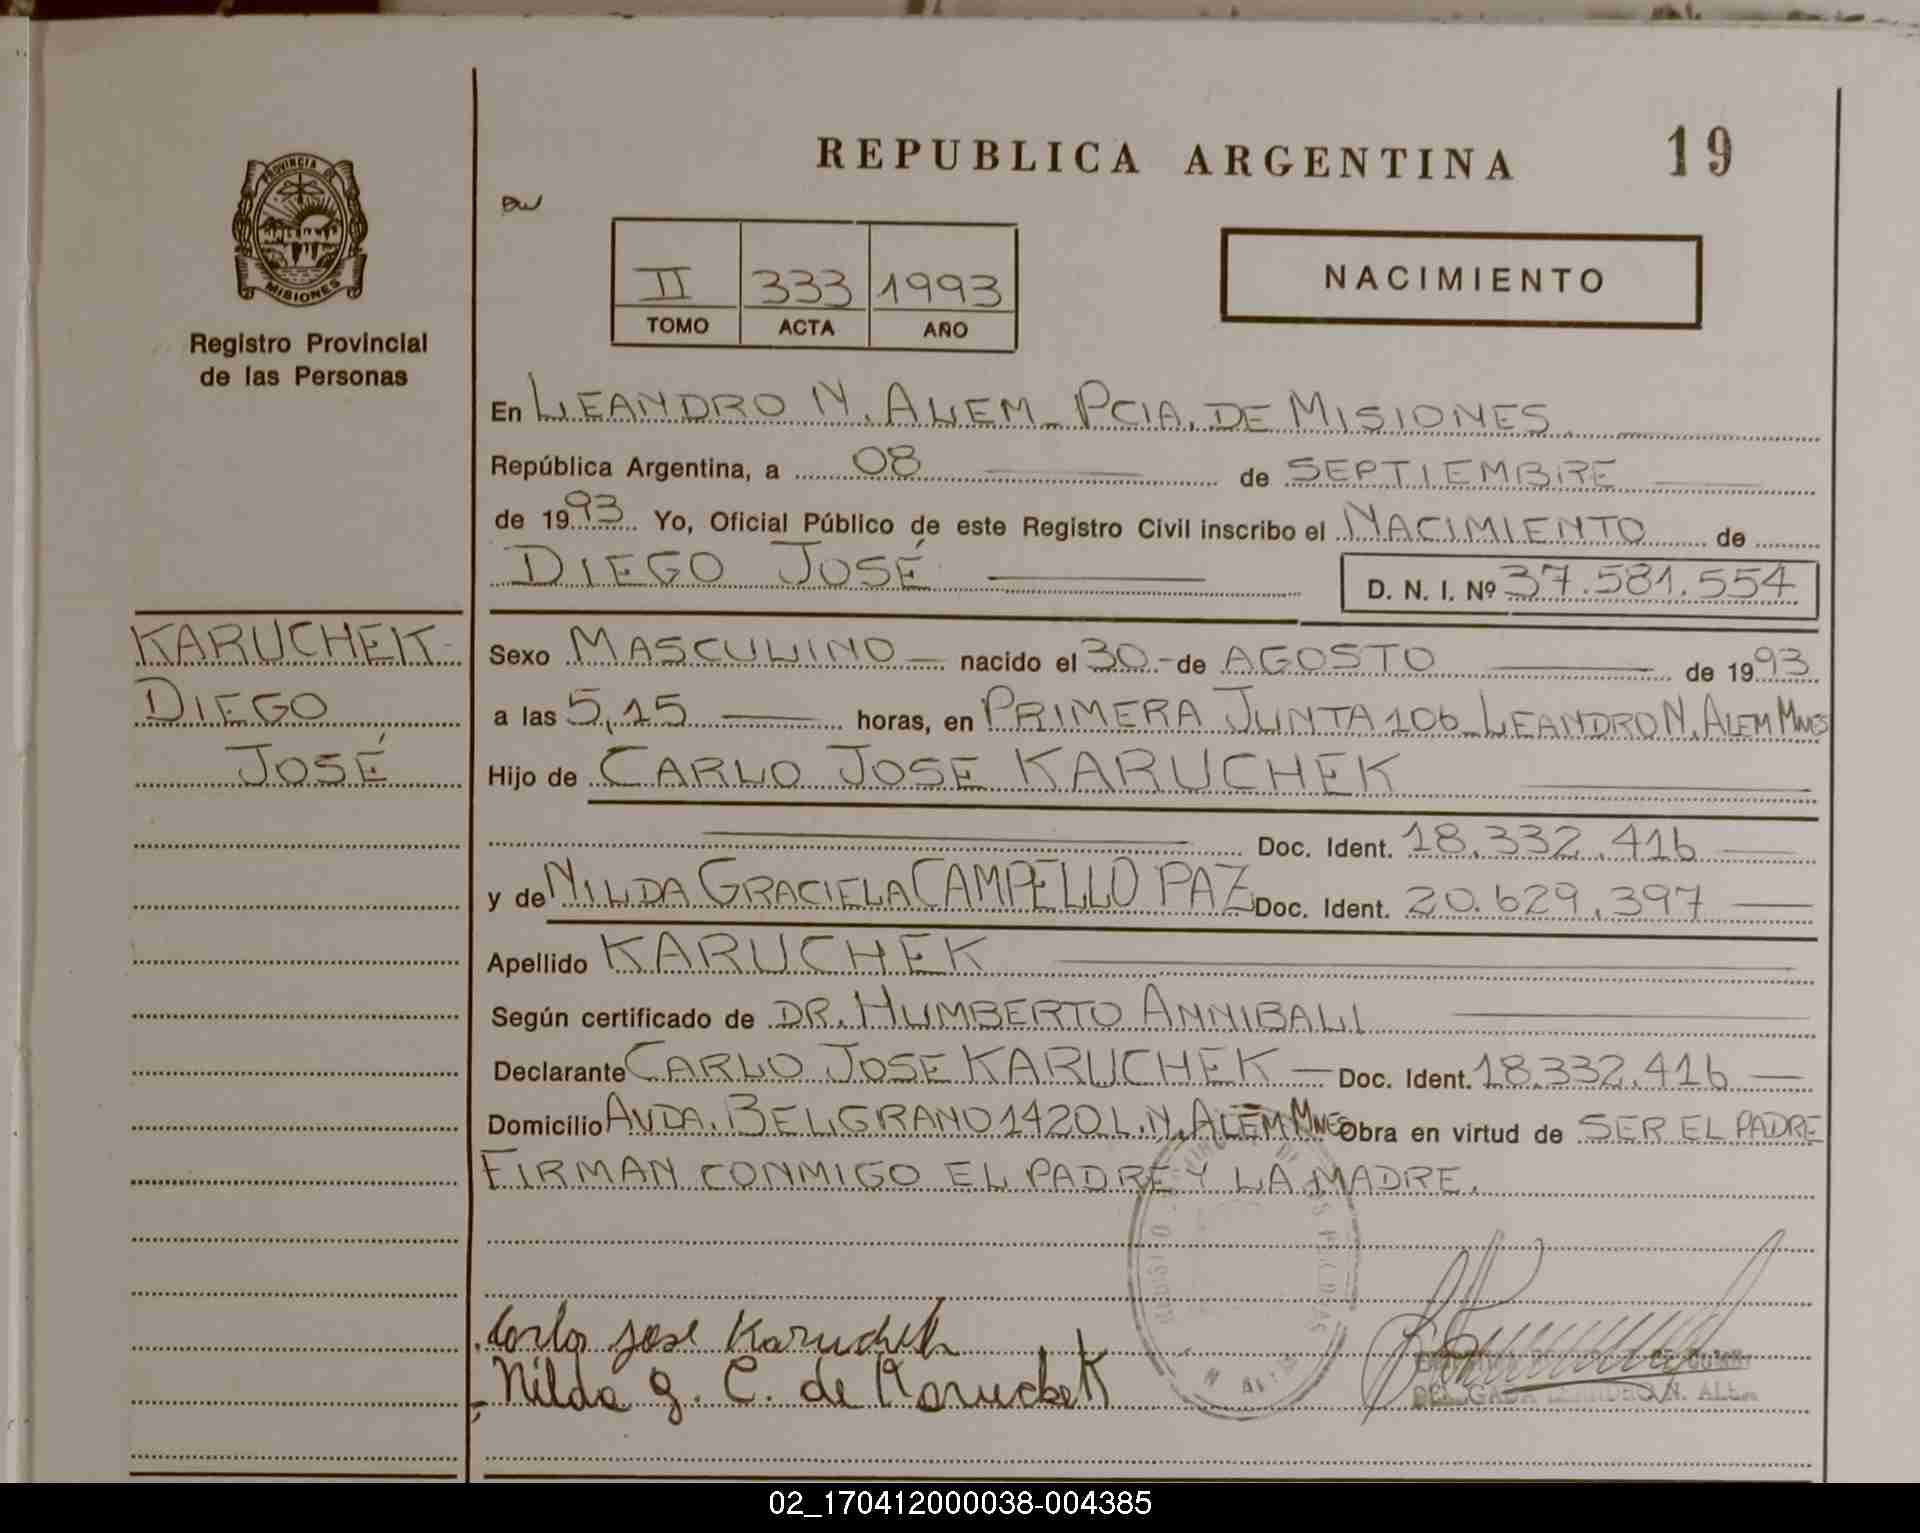 REPUBLICA ARGENTINA
19
PROVINCIA DE
MISIONES
Registro Provincial
de las Personas
II 333 1993
TOMO ACTA AÑO
NACIMIENTO
En LEANDRO N. ALEM - PCIA. DE MISIONES
República Argentina, a 08 de SEPTIEMBRE
de 1993 Yo, Oficial Público de este Registro Civil inscribo el NACIMIENTO de
DIEGO JOSÉ
D. N. I. Nº 37.581.554
KARUCHEK-
DIEGO
JOSÉ
Sexo MASCULINO nacido el 30 - de AGOSTO de 1993
a las 5,15 horas, en PRIMERA JUNTA 106 - LEANDRO N. ALEM Mnes
Hijo de CARLO JOSE KARUCHEK
Doc. Ident. 18.332.416
y de NILDA GRACIELA CAMPELLO PAZ Doc. Ident. 20.629.397
Apellido KARUCHEK
Según certificado de DR. HUMBERTO ANNIBALI
Declarante CARLO JOSE KARUCHEK - Doc. Ident. 18.332.416
Domicilio AVDA. BELGRANO 1420 L.N. ALEM Mnes Obra en virtud de SER EL PADRE
FIRMAN CONMIGO EL PADRE Y LA MADRE.
Carlo jose Karuchek
Nilda g. C. de Karuchek
DELEGADA LEANDRO N. ALEM
02_170412000038-004385